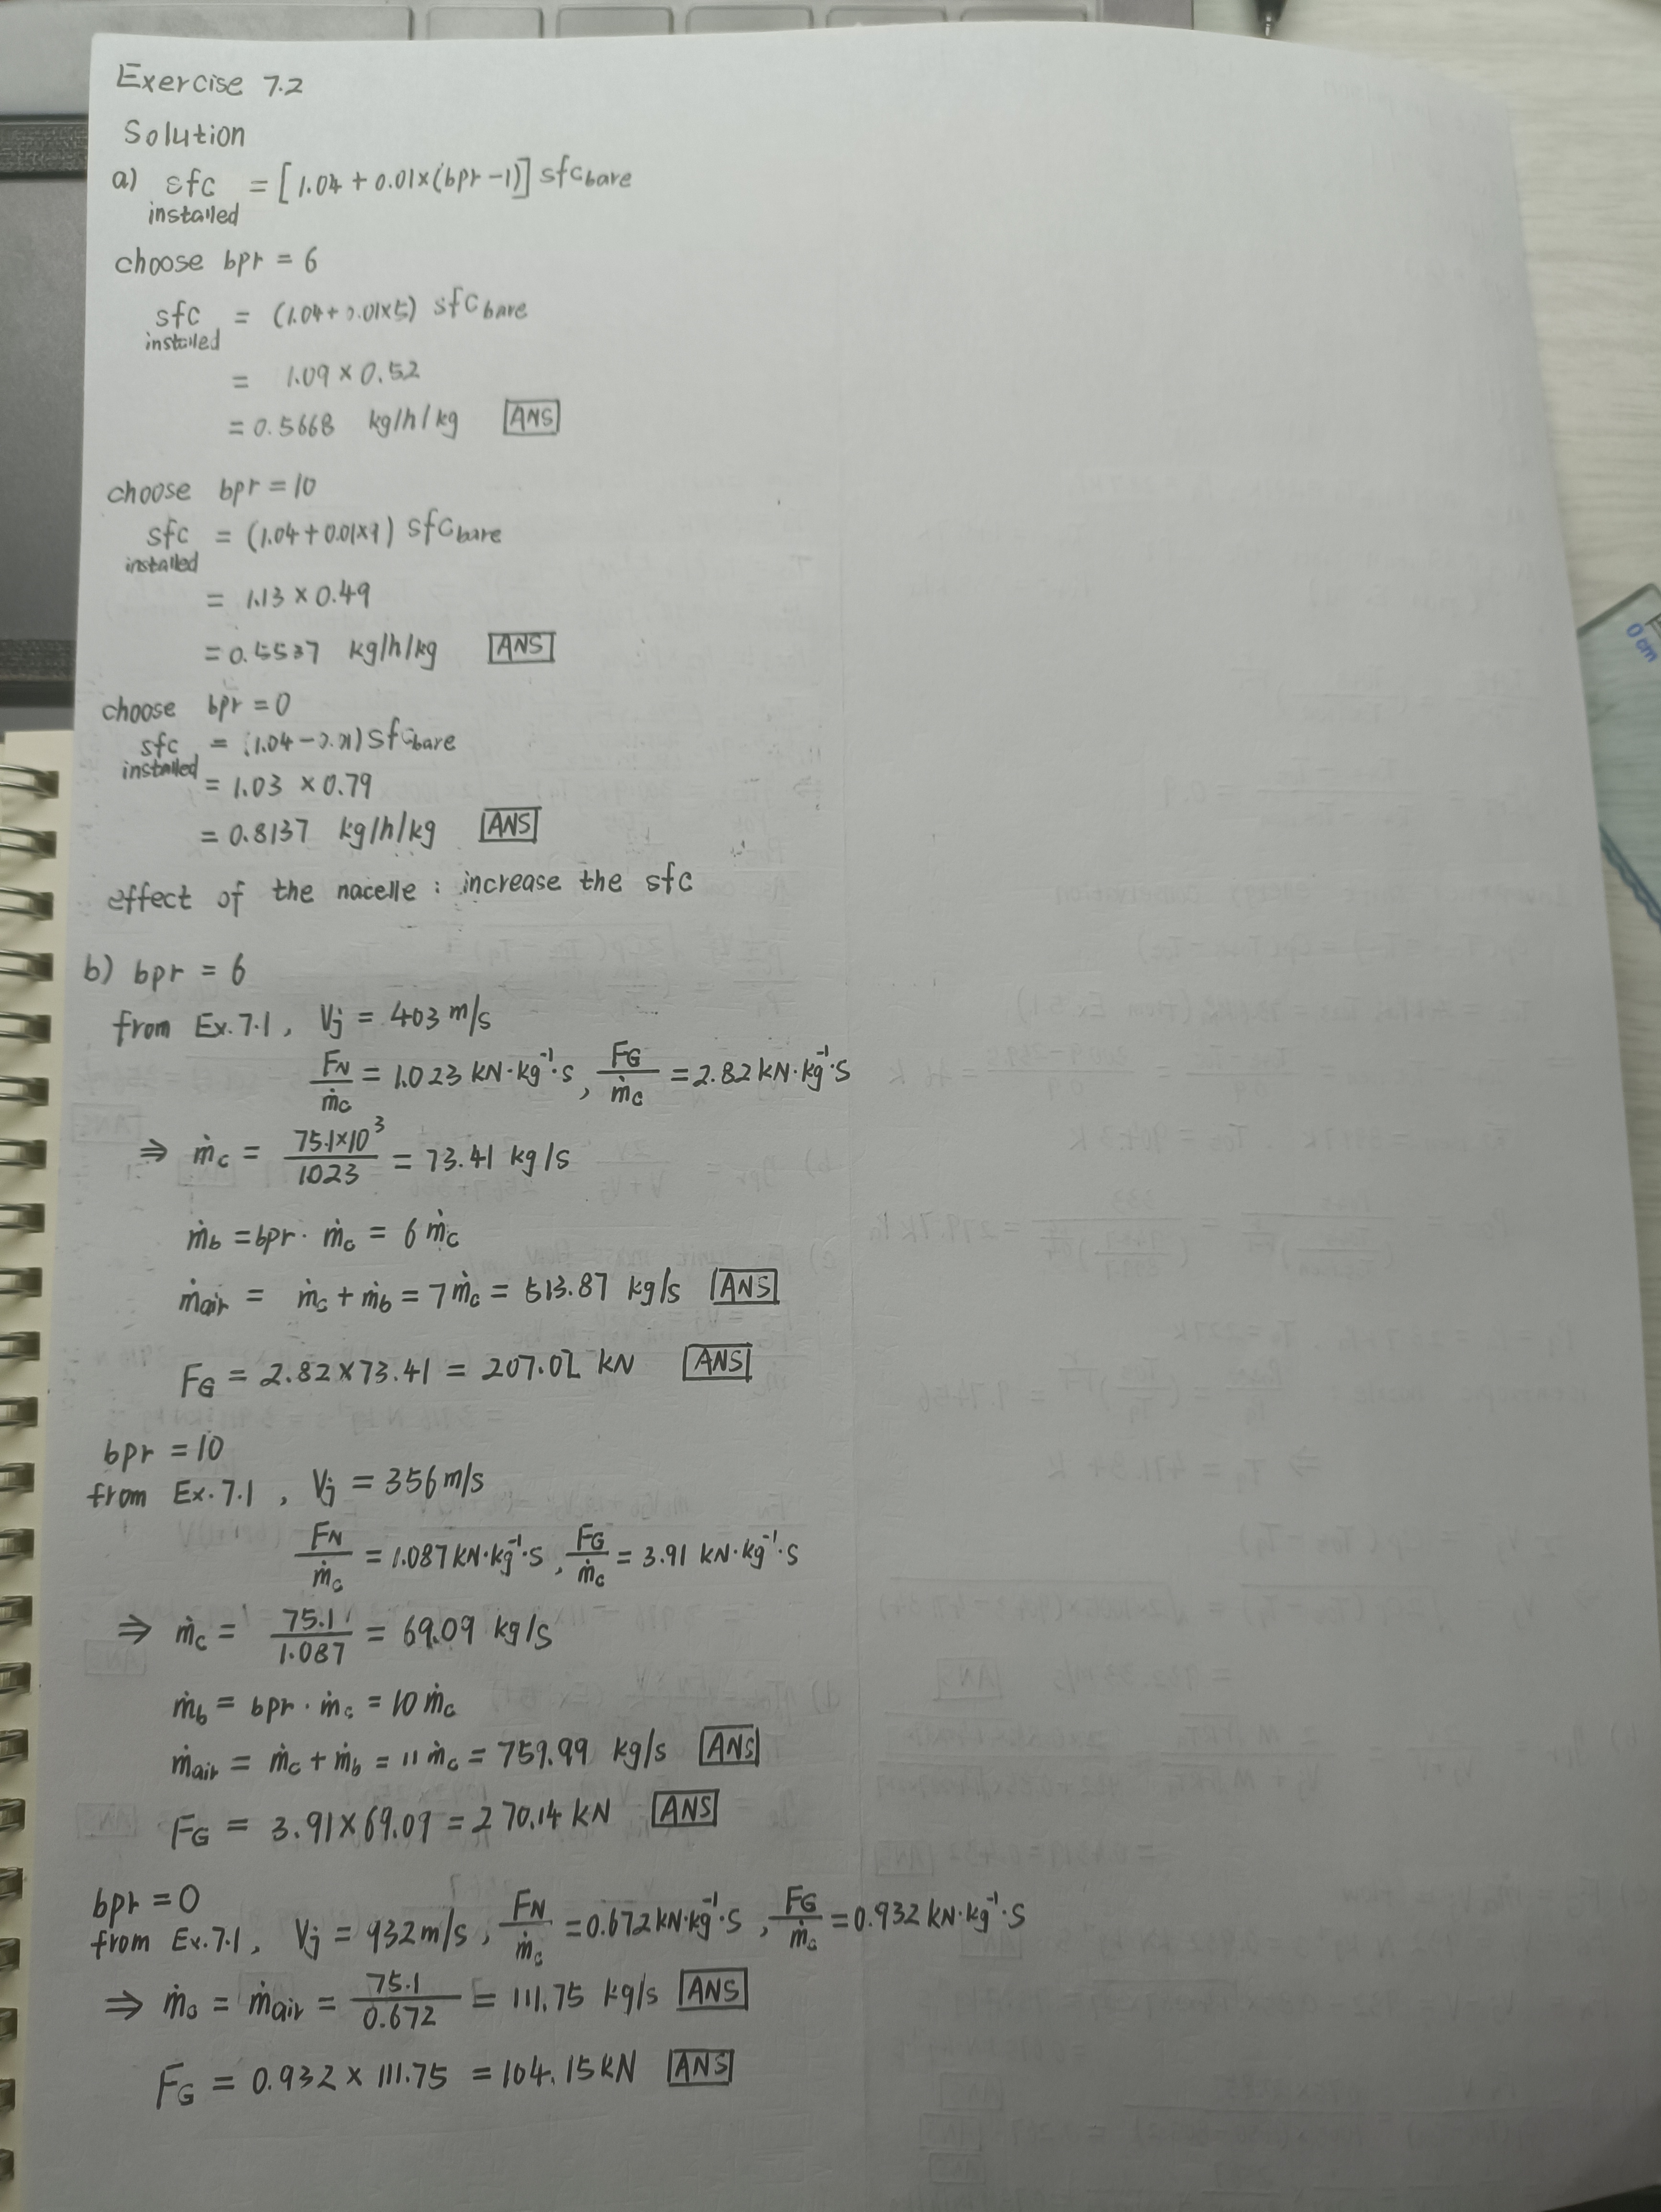 Exercise 7.2
Solution
a) sfc installed = [1.04 + 0.01×(bpr −1)] sfc bare
choose bpr = 6
sfc installed = (1.04+0.01×5) sfc bare
= 1.09 × 0.52
= 0.5668 kg/h/kg ANS
choose bpr = 10
sfc installed = (1.04+0.01×9) sfc bare
= 1.13 × 0.49
= 0.5537 kg/h/kg ANS
choose bpr = 0
sfc installed = (1.04−0.01) sfc bare
= 1.03 × 0.79
= 0.8137 kg/h/kg ANS
effect of the nacelle : increase the sfc
b) bpr = 6
from Ex.7.1, Vj = 403 m/s
FN/ṁc = 1.023 kN·kg⁻¹·s, FG/ṁc = 2.82 kN·kg⁻¹·s
⇒ ṁc = 75.1×10³/1023 = 73.41 kg/s
ṁb = bpr · ṁc = 6 ṁc
ṁair = ṁc + ṁb = 7 ṁc = 513.87 kg/s ANS
FG = 2.82×73.41 = 207.02 kN ANS
bpr = 10
from Ex.7.1, Vj = 356 m/s
FN/ṁc = 1.087 kN·kg⁻¹·s, FG/ṁc = 3.91 kN·kg⁻¹·s
⇒ ṁc = 75.1/1.087 = 69.09 kg/s
ṁb = bpr · ṁc = 10 ṁc
ṁair = ṁc + ṁb = 11 ṁc = 759.99 kg/s ANS
FG = 3.91×69.09 = 270.14 kN ANS
bpr = 0
from Ex.7.1, Vj = 932 m/s, FN/ṁc = 0.672 kN·kg⁻¹·s, FG/ṁc = 0.932 kN·kg⁻¹·s
⇒ ṁc = ṁair = 75.1/0.672 = 111.75 kg/s ANS
FG = 0.932 × 111.75 = 104.15 kN ANS
0 cm